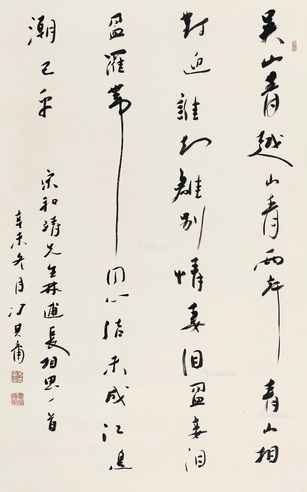 吴山青越山青两岸青山相
对迎谁知离别情妾泪盈妾泪
盈罗带同心结未成江边
潮已平
宋和靖先生林逋长相思一首
辛未冬月冯其庸